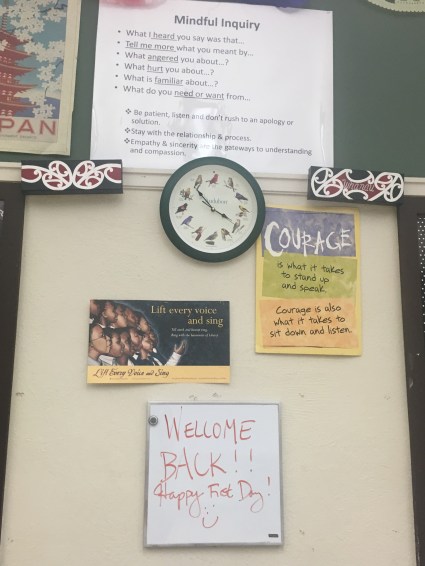 Mindful Inquiry
• What I heard you say was that…
• Tell me more what you meant by…
• What angered you about…?
• What hurt you about…?
• What is familiar about…?
• What do you need or want from…
❖ Be patient, listen and don't rush to an apology or
solution.
❖Stay with the relationship & process.
❖Empathy & sincerity are the gateways to understanding
and compassion.
PAN
Audubon
COURAGE
is what it takes
to stand up
and speak.
Courage is also
what it takes to
sit down and listen.
Lift every voice
and sing
Lift Every Voice and Sing
WELCOME
BACK!!
Happy First Day!